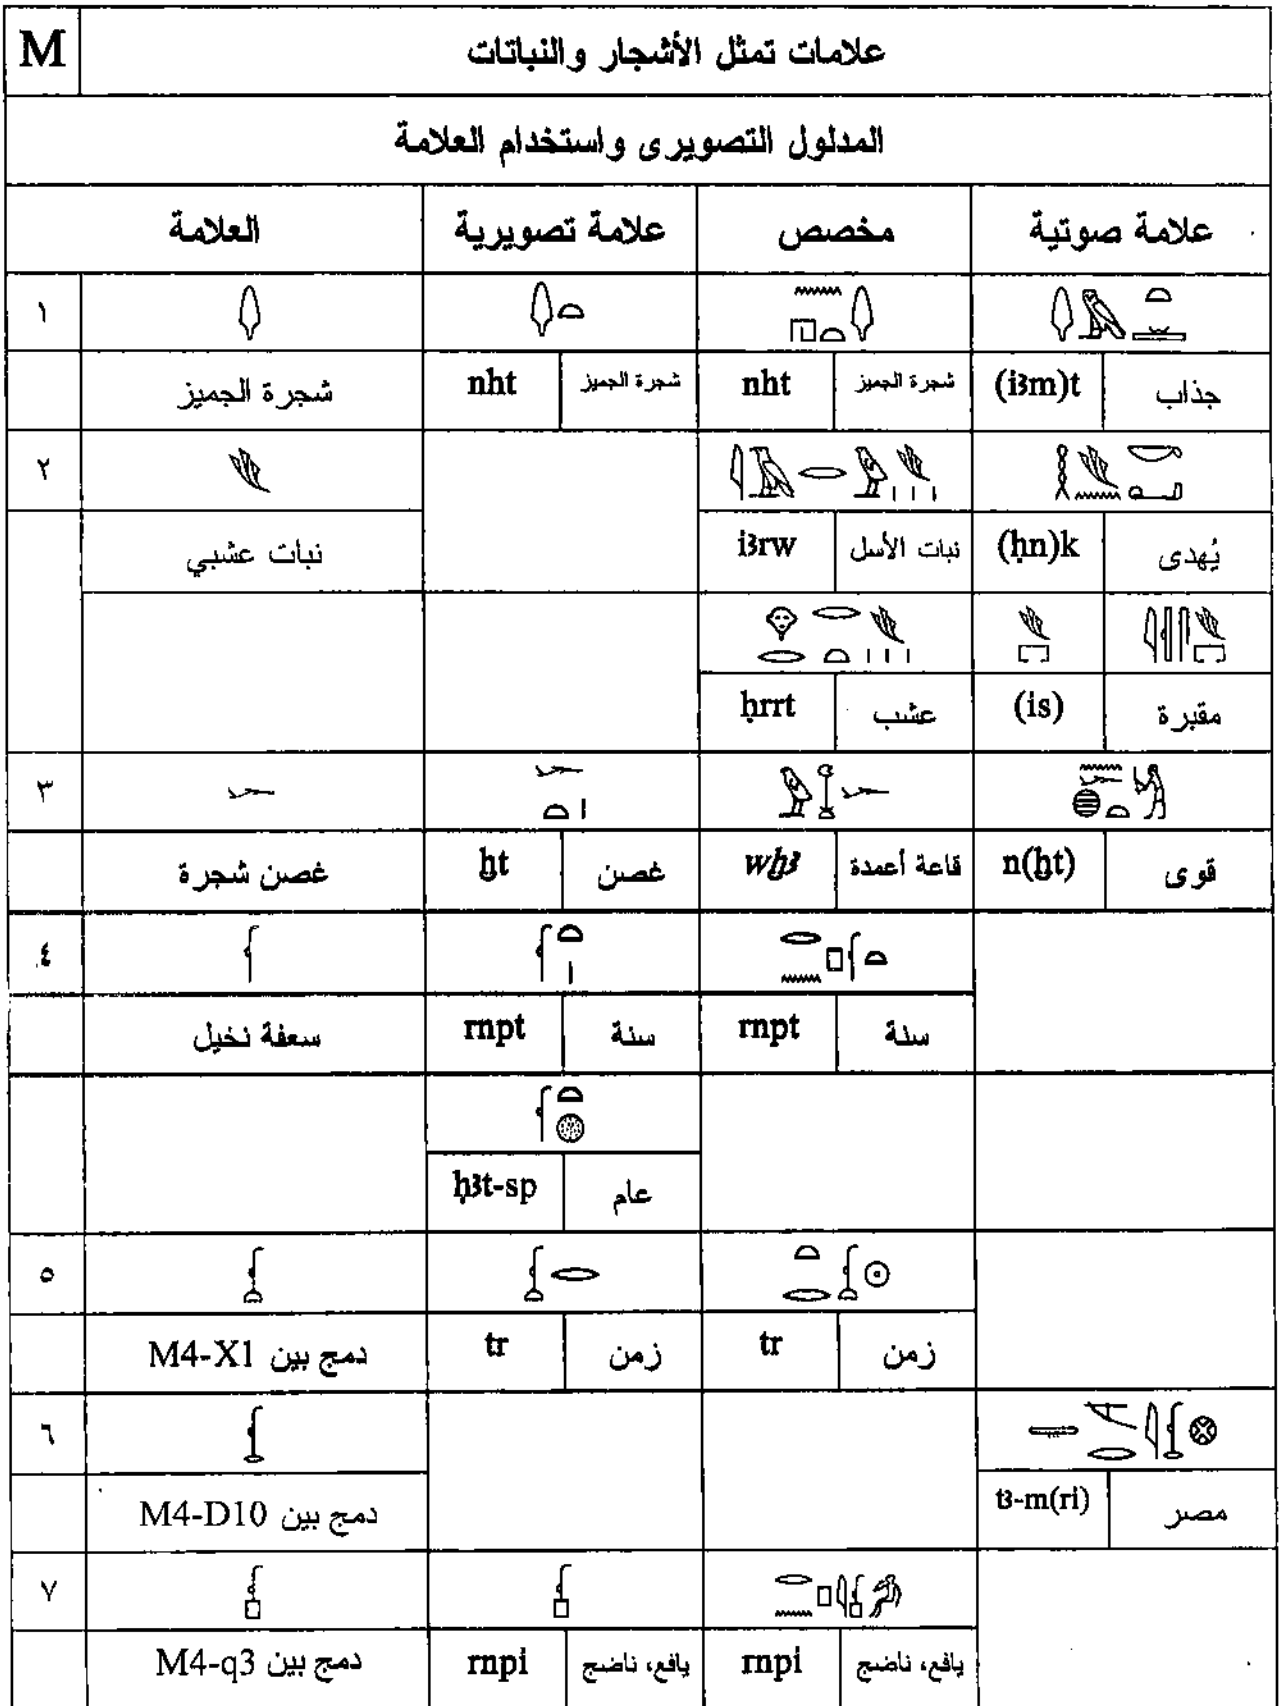 M علامات تمثل الأشجار والنباتات
المدلول التصويرى واستخدام العلامة
العلامة علامة تصويرية مخصص علامة صوتية
١
شجرة الجميز nht شجرة الجميز nht شجرة الجميز (iꜣm)t جذاب
٢
نبات عشبي iꜣrw نبات الأسل (ḥn)k يُهدى
ḥrrt عشب (is) مقبرة
٣
غصن شجرة ḫt غصن wḫꜣ قاعة أعمدة n(ḫt) قوى
٤
سعفة نخيل rnpt سنة rnpt سنة
ḥꜣt-sp عام
٥
دمج بين M4-X1 tr زمن tr زمن
٦
دمج بين M4-D10 tꜣ-m(ri) مصر
٧
دمج بين M4-q3 rnpi يافع، ناضج rnpi يافع، ناضج